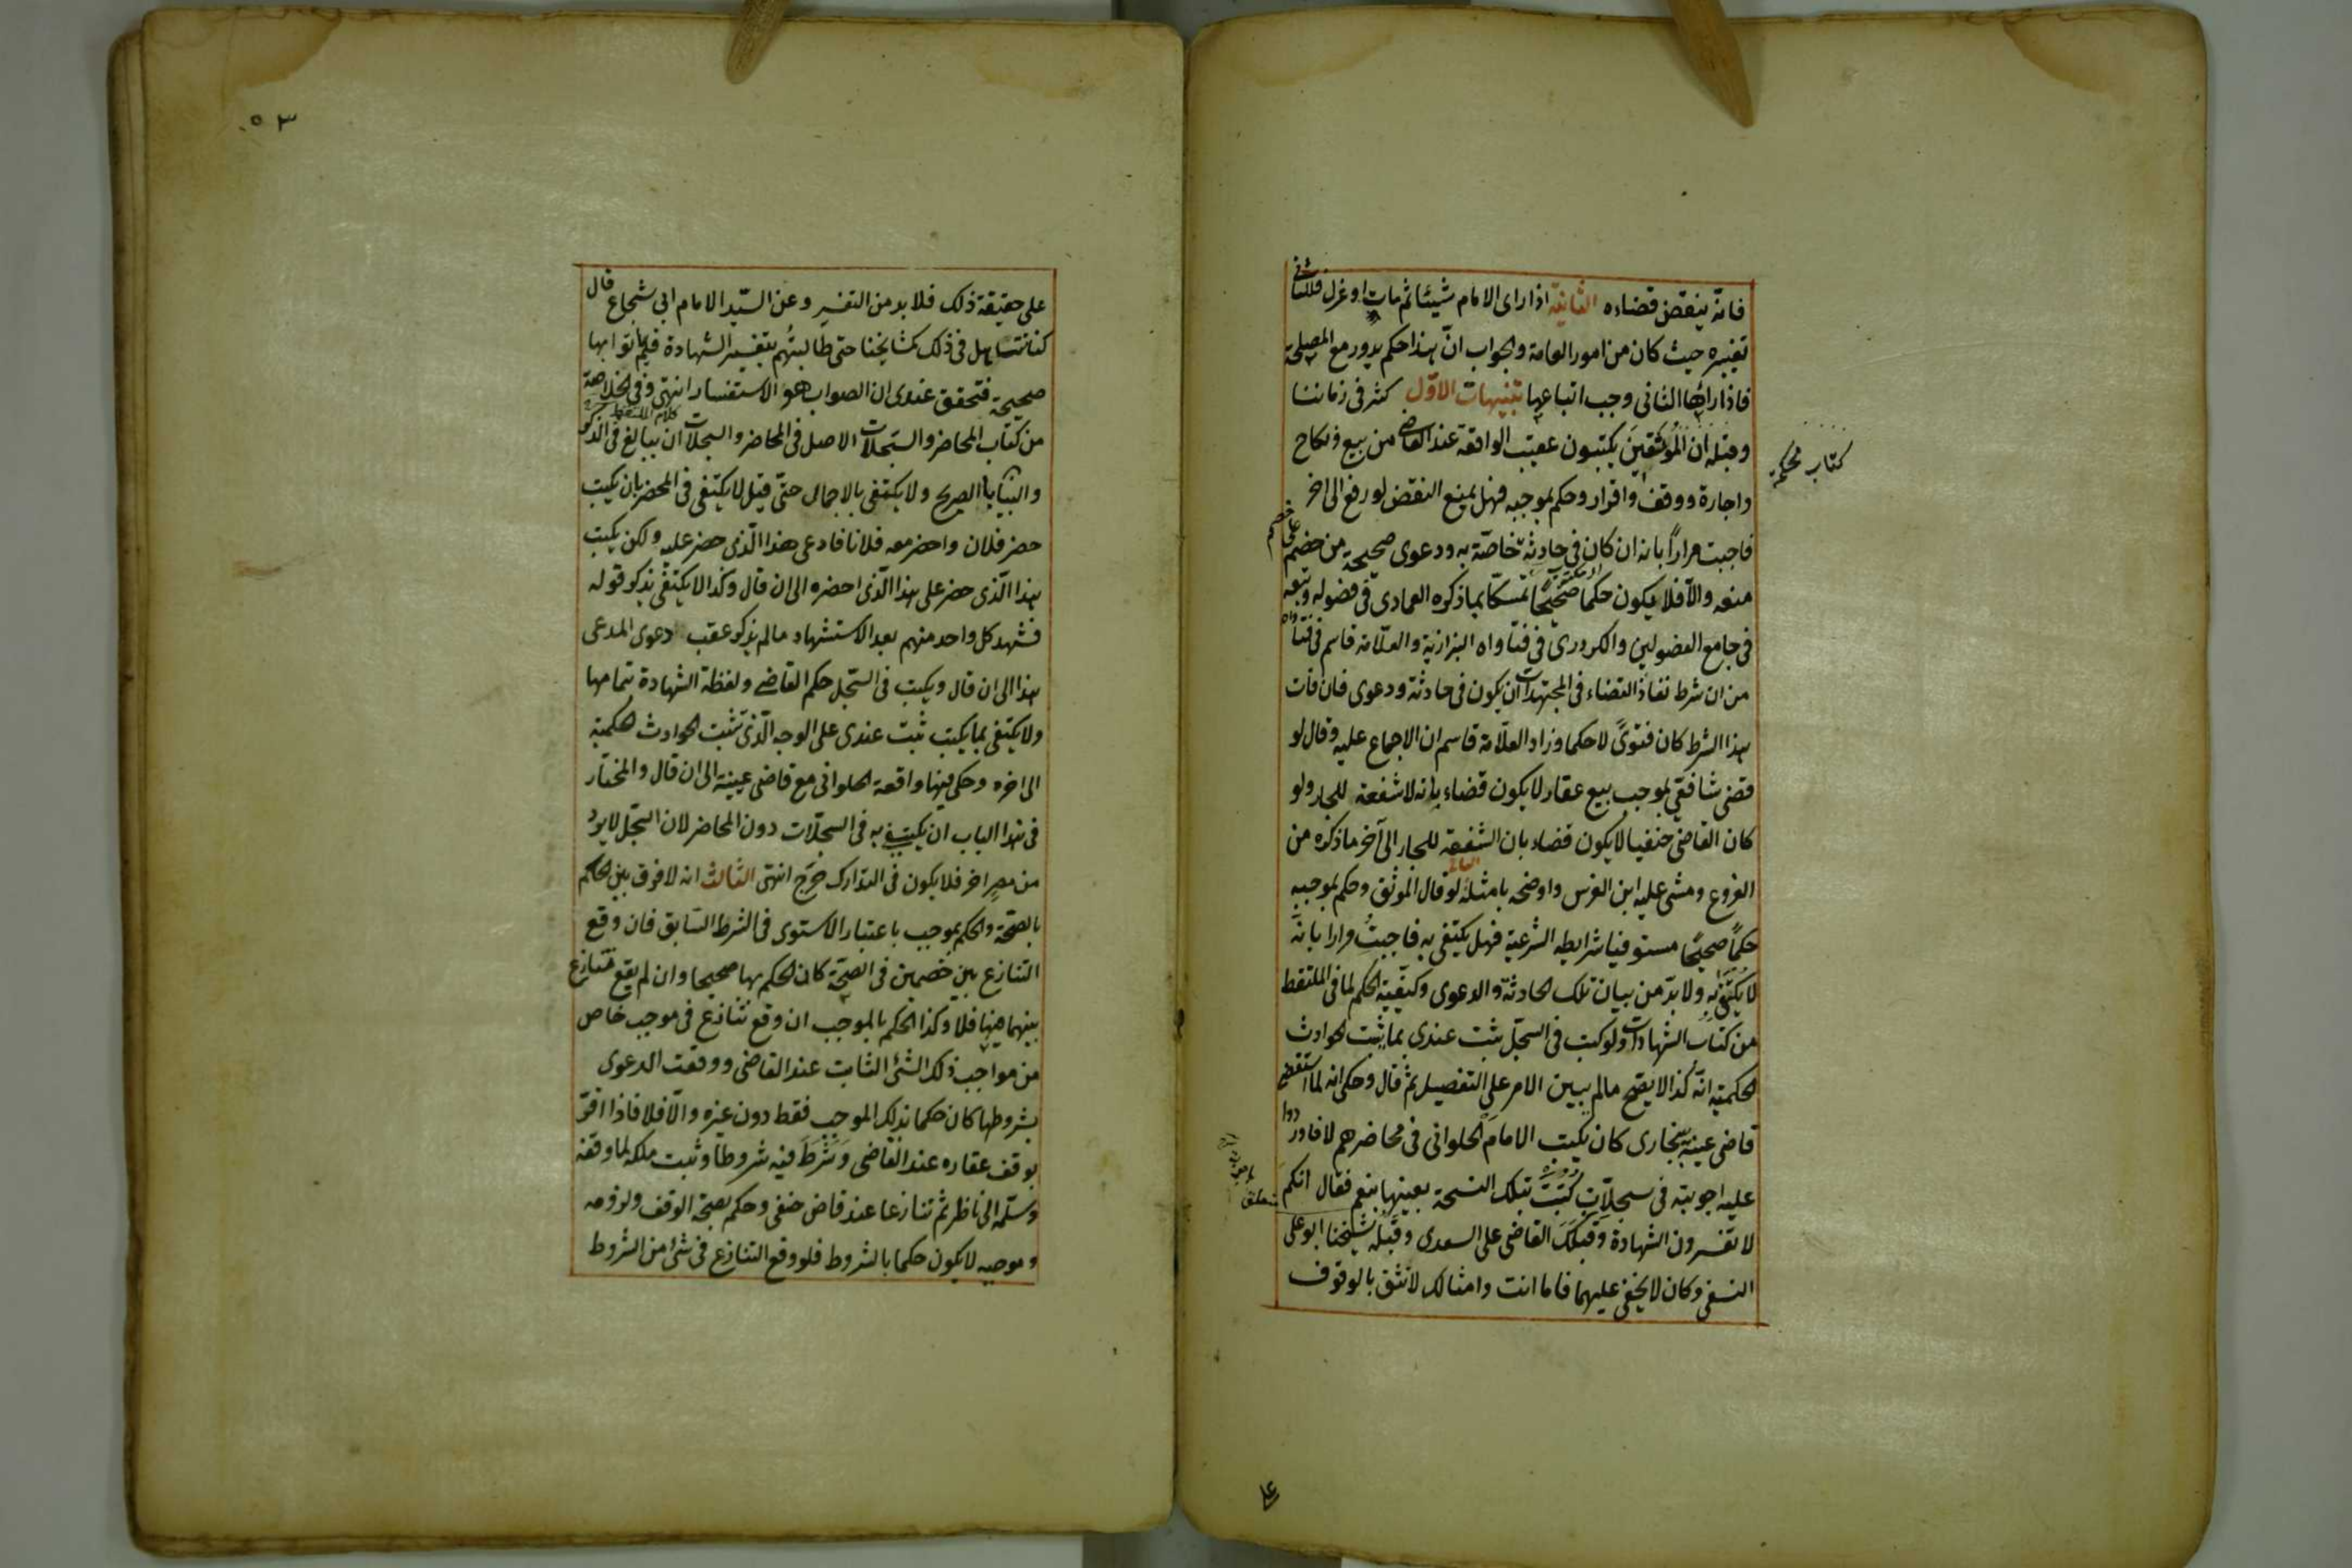 فانه ينقض قضاءه الثانية اذا راى الامام شيئا ثم مات او عزل فللثانى
تغييره حيث كان من امور العامة والجواب انّ هذا حكم يدور مع المصلحة
فاذا رائها الثانى وجب اتباعها تنبيهات الاوّل كثر فى زماننا
وقبله ان المُوثقينَ يكتبون عقيب الواقعة عند القاضى من بيع ونكاح
واجارة ووقف واقرار وحكم بموجبه فهل يمنع النقض لو رفع الى اخر
فاجبت مراراً بانه ان كان فى حادثة خاصّة به ودعوى صحيحة من خصم على خصم
منعه والّا فلا يكون حكما صحيحًا تمسكًا بما ذكره العمادى فى فصوله وتبعه
فى جامع الفصولين والكردرى فى فتاواه البزازية والعلّامة قاسم فى فتاواه
من ان شرط نفاذ القضاء فى المجتهدات ان يكون فى حادثة ودعوى فان فات
هذا الشرط كان فتوىً لا حكما وزاد العلّامة قاسم ان الاجماع عليه وقال لو
قضى شافعى بموجب بيع عقار لا يكون قضاء بانه لا شفعة للجار ولو
كان القاضى حنفيا لا يكون قضاء بان الشفعة للجار الى آخر ما ذكره من
الفروع ومشى عليه ابن الغرس واوضحه بامثلة الثانى لو قال الموثق وحكم بموجبه
حكمًا صحيحًا مستوفيا شرايطه الشرعية فهل يكتفى به فاجبتُ مرارا بانّه
لا يُكتفى به ولا بدّ من بيان تلك الحادثة والدعوى وكيفيّة الحكم لما فى الملتقط
من كتاب الشهادات ولو كتب فى السجّل ثبت عندى بما يثبت الحوادث
الحكمية انّه كذا لا يصحّ ما لم يبين الامر على التفصيل ثم قال وحكى انه لما استقضى
قاضى عينه ببخارى كان يكتب الامام الحلوانى فى محاضرهم لا فاوردوا
عليه اجوبته فى سجلّات كُتبتْ بتلك النسخة بعينها بنعم فقال انكم
لا تفسرون الشهادة وقبلَكَ القاضى على السعدى وقبلَه شيخنا ابو على
النسفى وكان لا يخفى عليهما فاما انت وامثالك لا نثق بالوقوف
كتاب محكمه
على
٥٣
على حقيقة ذلك فلا بد من التفسير وعن السّيد الامام ابى شجاع قال
كنا نتساهل فى ذلك كمشايخنا حتى طالبتُهم بتفسير الشهادة فلم ياتوا بها
صحيحة فتحقق عندى ان الصواب هو الاستفسار انتهى كلام الملتقط وفى الخلاصة
من كتاب المحاضر والسّجلات الاصل فى المحاضر والسجلات ان يبالغ فى الذكر
والبيان بالصريح ولا يكتفى بالاجمال حتّى قيل لا يكتفى فى المحضر بان يكتب
حضر فلان واحضر معه فلانا فادعى هذا الّذى حضر عليه ولكن يكتب
هذا الّذى حضر على هذا الّذى احضره الى ان قال وكذا لا يكتفى بذكر قوله
فشهد كل واحد منهم بعد الاستشهاد ما لم يذكر عقب دعوى المدعى
هذا الى ان قال ويكتب فى السّجل حكم القاضى ولفظة الشهادة بتمامها
ولا يكتفى بما يكتب ثبت عندى على الوجه الّذى تثبت الحوادث الحكمية
الى اخره وحكى فيها واقعة الحلوانى مع قاضى عينة الى ان قال والمختار
فى هذا الباب ان يكتفى به فى السجلّات دون المحاضر لان السّجل لا يرد
من مصر اخر فلا يكون فى التدارك حرج انتهى الثالث انه لا فرق بين الحكم
بالصّحة والحكم بموجب باعتبار الاستوى فى الشرط السّابق فان وقع
التنازع بين خصمين فى الصّحة كان الحكم بها صحيحا وان لم يقع تنازع
بينهما فيها فلا وكذا الحكم بالموجب ان وقع تنازع فى موجب خاص
من مواجب ذلك الشئ الثابت عند القاضى ووقعت الدعوى
بشروطها كان حكما بذلك الموجب فقط دون غيره والّا فلا فاذا اقرّ
بوقف عقاره عند القاضى وَشَرَطَ فيه شروطًا وثبت ملكه لما وقفه
وسلّمه الى ناظر ثم تنازعا عند قاض حنفى وحكم بصحة الوقف ولزومه
وموجبه لا يكون حكما بالشروط فلو وقع التنازع فى شئ من الشروط